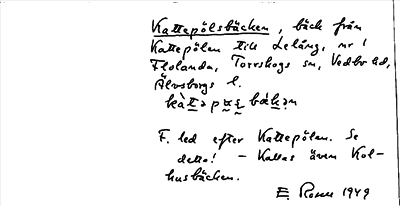 Kattepölsbäcken, bäck från
Kattepölen till Lelång, nr 1
Flolanda, Torrskogs sn, Vedbo hd,
Älvsborgs l.
F. led efter Kattepölen. Se
detta! – Kallas även Kol-
husbäcken.
E. Rosen 1949